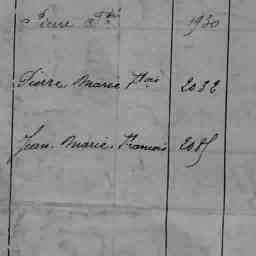 Pierre 1930
Pierre Marie Fçois 2032
Jean Marie François 2085